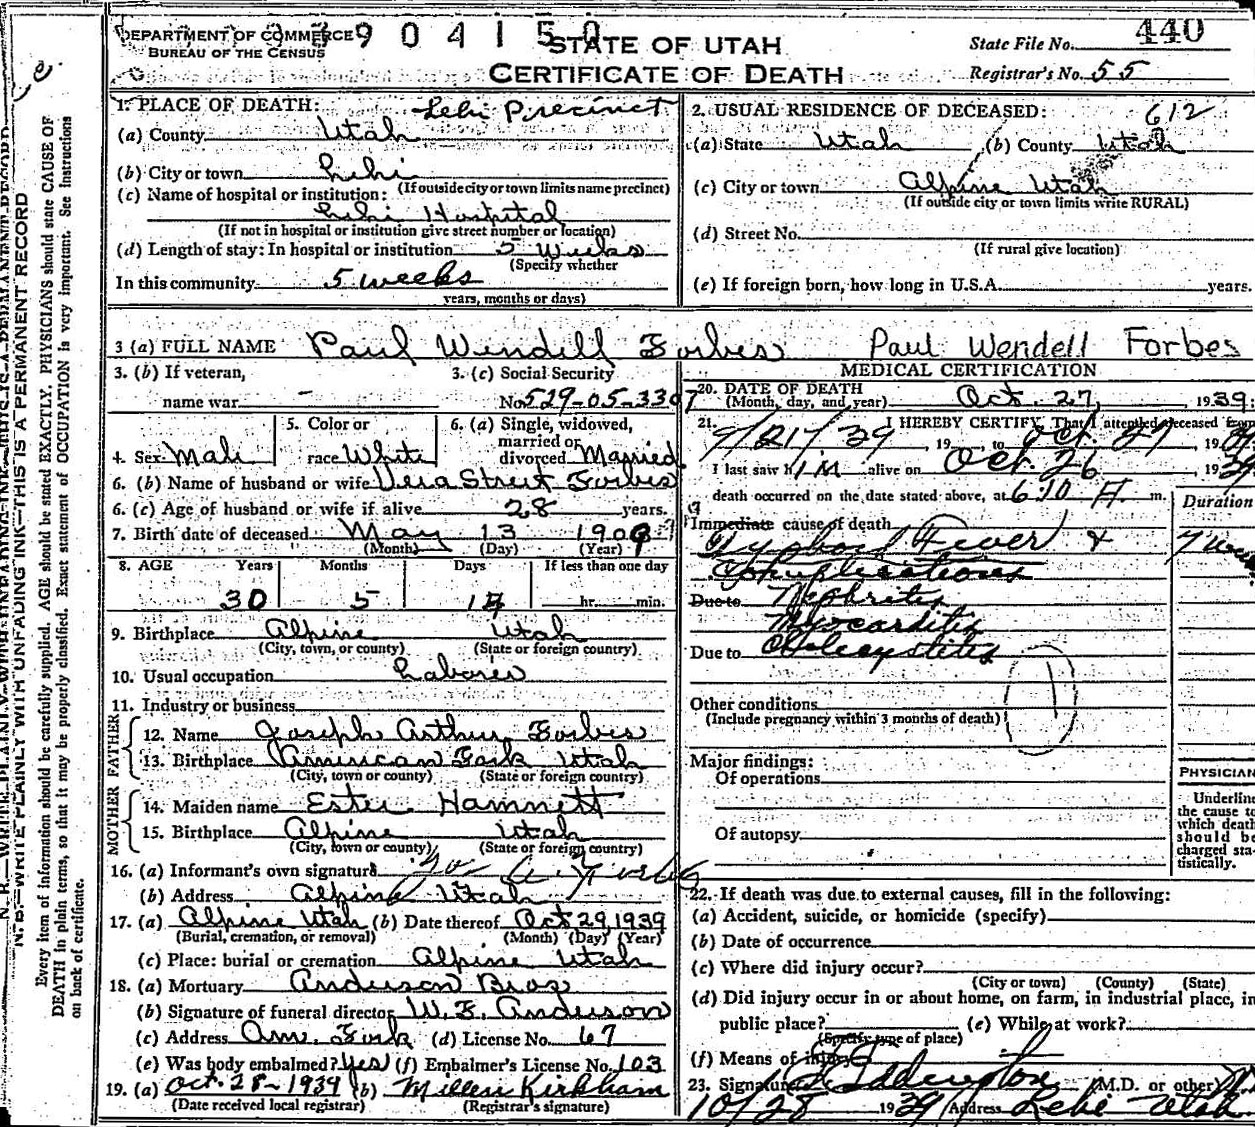 DEPARTMENT OF COMMERCE
BUREAU OF THE CENSUS
3904150
STATE OF UTAH
CERTIFICATE OF DEATH
State File No. 440
Registrar's No. 55
N. B.—WRITE PLAINLY WITH UNFADING INK—THIS IS A PERMANENT RECORD
Every item of information should be carefully supplied. AGE should be stated EXACTLY. PHYSICIANS should state CAUSE OF
DEATH in plain terms, so that it may be properly classified. Exact statement of OCCUPATION is very important. See Instructions
on back of certificate.
1. PLACE OF DEATH: Lehi Precinct
(a) County Utah
(b) City or town Lehi
(If outside city or town limits name precinct)
(c) Name of hospital or institution:
Lehi Hospital
(If not in hospital or institution give street number or location)
(d) Length of stay: In hospital or institution 5 Weeks
(Specify whether
In this community 5 weeks
years, months or days)
2. USUAL RESIDENCE OF DECEASED: 612
(a) State Utah (b) County Utah
(c) City or town Alpine Utah
(If outside city or town limits write RURAL)
(d) Street No.
(If rural give location)
(e) If foreign born, how long in U.S.A. years.
3 (a) FULL NAME Paul Wendell Forbes Paul Wendell Forbes
3. (b) If veteran,
name war -
3. (c) Social Security
No. 529-05-3307
4. Sex Male
5. Color or
race White
6. (a) Single, widowed,
married or
divorced Married
6. (b) Name of husband or wife Vera Street Forbes
6. (c) Age of husband or wife if alive 28 years.
7. Birth date of deceased May 13 1909 ?
(Month) (Day) (Year)
8. AGE Years Months Days If less than one day
30 5 14 hr. min.
9. Birthplace Alpine Utah
(City, town, or county) (State or foreign country)
10. Usual occupation Laborer
11. Industry or business
FATHER
12. Name Joseph Arthur Forbes
13. Birthplace American Fork Utah
(City, town or county) (State or foreign country)
MOTHER
14. Maiden name Ester Hammett
15. Birthplace Alpine Utah
(City, town or county) (State or foreign country)
16. (a) Informant's own signature Jos A. Forbes
(b) Address Alpine Utah
17. (a) Alpine Utah (b) Date thereof Oct 29, 1939
(Burial, cremation, or removal) (Month) (Day) (Year)
(c) Place: burial or cremation Alpine Utah
18. (a) Mortuary Anderson Bros
(b) Signature of funeral director W. E. Anderson
(c) Address Am. Fork (d) License No. 67
(e) Was body embalmed? Yes (f) Embalmer's License No. 103
19. (a) Oct. 28-1939 (b) Millen Kirkham
(Date received local registrar) (Registrar's signature)
MEDICAL CERTIFICATION
20. DATE OF DEATH
(Month, day, and year) Oct. 27, 1939:
21. I HEREBY CERTIFY, That I attended deceased from
9/21/39, 19 to Oct. 27, 19 39
I last saw him alive on Oct. 26 1939
death occurred on the date stated above, at 6:10 A. m.
Immediate cause of death Duration
Typhoid Fever &
Complications
Due to Nephritis
Myocarditis
Due to Cholecystitis
Other conditions
(Include pregnancy within 3 months of death)
1
Major findings:
Of operations
Of autopsy
PHYSICIAN
Underline
the cause to
which death
should be
charged sta-
tistically.
22. If death was due to external causes, fill in the following:
(a) Accident, suicide, or homicide (specify)
(b) Date of occurrence
(c) Where did injury occur?
(City or town) (County) (State)
(d) Did injury occur in or about home, on farm, in industrial place, in
public place? (e) While at work?
(Specify type of place)
(f) Means of injury
23. Signature Eddington (M.D. or other)
10/28 1939 Address Lehi Utah